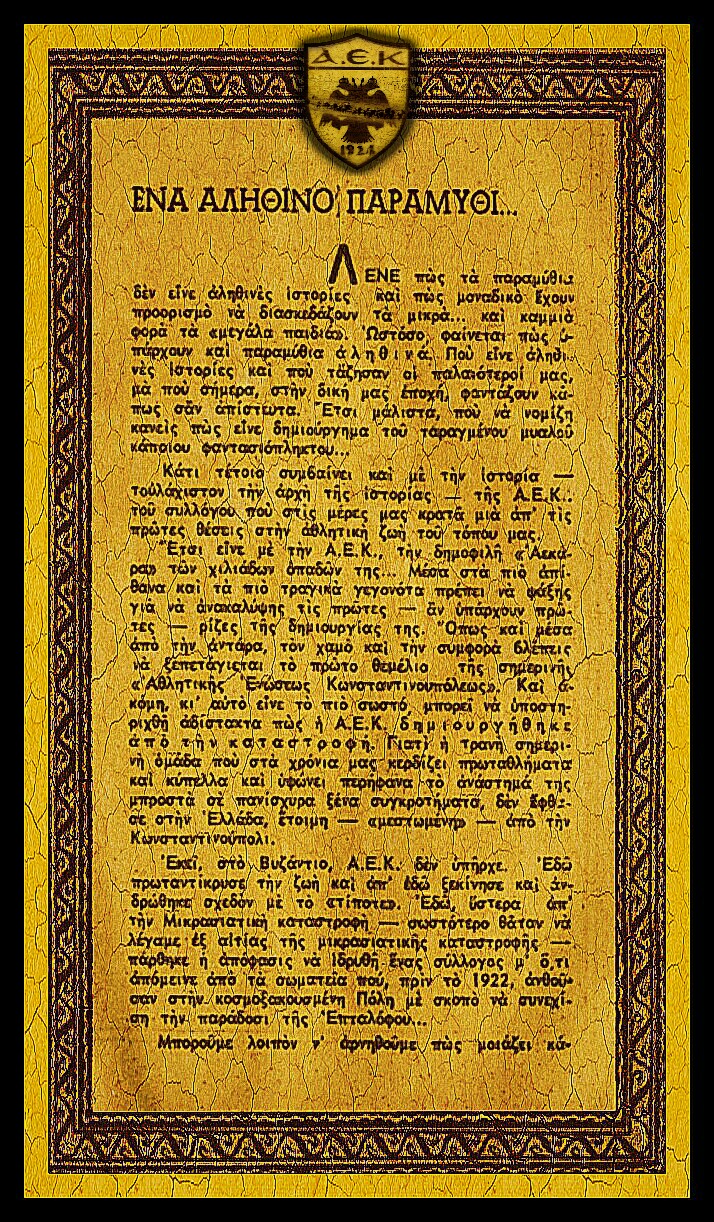 Α.Ε.Κ
1924
ΕΝΑ ΑΛΗΘΙΝΟ ΠΑΡΑΜΥΘΙ...
ΛΕΝΕ πὼς τὰ παραμύθια
δὲν εἶνε ἀληθινὲς ἱστορίες καὶ πὼς μοναδικὸ ἔχουν
προορισμὸ νὰ διασκεδάζουν τὰ μικρὰ... καὶ καμμιὰ
φορὰ τὰ «μεγάλα παιδιά». Ὡστόσο, φαίνεται πὼς ὑ-
πάρχουν καὶ παραμύθια ἀληθινά. Ποὺ εἶνε ἀληθι-
νὲς ἱστορίες καὶ ποὺ τἄζησαν οἱ παλαιότεροί μας,
μὰ ποὺ σήμερα, στὴν δική μας ἐποχή, φαντάζουν κά-
πως σὰν ἀπίστευτα. Ἔτσι μάλιστα, ποὺ νὰ νομίζη
κανεὶς πὼς εἶνε δημιούργημα τοῦ ταραγμένου μυαλοῦ
κάποιου φαντασιόπληκτου...
Κάτι τέτοιο συμβαίνει καὶ μὲ τὴν ἱστορία —
τοὐλάχιστον τὴν ἀρχὴ τῆς ἱστορίας — τῆς Α.Ε.Κ.:
τοῦ συλλόγου ποὺ στὶς μέρες μας κρατᾶ μιὰ ἀπ' τὶς
πρῶτες θέσεις στὴν ἀθλητικὴ ζωὴ τοῦ τόπου μας.
Ἔτσι εἶνε μὲ τὴν Α.Ε.Κ., τὴν δημοφιλῆ «Ἀεκά-
ρα» τῶν χιλιάδων ὀπαδῶν της... Μέσα στὰ πιὸ ἀπί-
θανα καὶ τὰ πιὸ τραγικὰ γεγονότα πρέπει νὰ ψάξης
γιὰ νὰ ἀνακαλύψης τὶς πρῶτες — ἂν ὑπάρχουν πρῶ-
τες — ρίζες τῆς δημιουργίας της. Ὅπως καὶ μέσα
ἀπὸ τὴν ἀντάρα, τὸν χαμὸ καὶ τὴν συμφορὰ βλέπεις
νὰ ξεπετάγεται τὸ πρῶτο θεμέλιο τῆς σημερινῆς
«Ἀθλητικῆς Ἑνώσεως Κωνσταντινουπόλεως». Καὶ ἀ-
κόμη, κι' αὐτὸ εἶνε τὸ πιὸ σωστό, μπορεῖ νὰ ὑποστη-
ριχθῆ ἀδίστακτα πὼς ἡ Α.Ε.Κ. δημιουργήθηκε
ἀπὸ τὴν καταστροφή. Γιατὶ ἡ τρανὴ σημερι-
νὴ ὁμάδα ποὺ στὰ χρόνια μας κερδίζει πρωταθλήματα
καὶ κύπελλα καὶ ὑψώνει περήφανα τὸ ἀνάστημά της
μπροστὰ σὲ πανίσχυρα ξένα συγκροτήματα, δὲν ἔφθα-
σε στὴν Ἑλλάδα, ἕτοιμη — «μεστωμένη» — ἀπὸ τὴν
Κωνσταντινούπολι.
Ἐκεῖ, στὸ Βυζάντιο, Α.Ε.Κ. δὲν ὑπῆρχε. Ἐδῶ
πρωταντίκρυσε τὴν ζωὴ καὶ ἀπ' ἐδῶ ξεκίνησε καὶ ἀν-
δρώθηκε σχεδὸν μὲ τὸ «τίποτε». Ἐδῶ, ὕστερα ἀπ'
τὴν Μικρασιατικὴ καταστροφὴ — σωστότερο θἆταν νὰ
λέγαμε ἐξ αἰτίας τῆς μικρασιατικῆς καταστροφῆς —
πάρθηκε ἡ ἀπόφασις νὰ ἱδρυθῆ ἕνας σύλλογος μ' ὅ,τι
ἀπόμεινε ἀπὸ τὰ σωματεῖα ποὺ, πρὶν τὸ 1922, ἀνθοῦ-
σαν στὴν κοσμοξακουσμένη Πόλη μὲ σκοπὸ νὰ συνεχί-
ση τὴν παράδοσι τῆς Ἑπταλόφου...
Μποροῦμε λοιπὸν ν' ἀρνηθοῦμε πὼς μοιάζει κά-